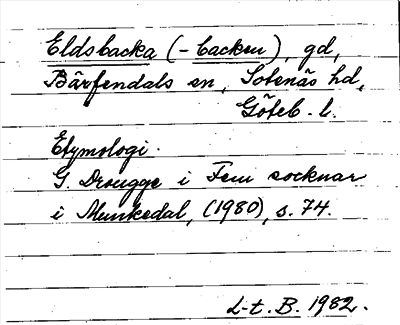 Eldsbacka (-backen), gd,
Bärfendals sn, Sotenäs hd,
Göteb. l.
Etymologi.
G. Drougge i Fem socknar
i Munkedal, (1980), s. 74.
L-t. B. 1982.